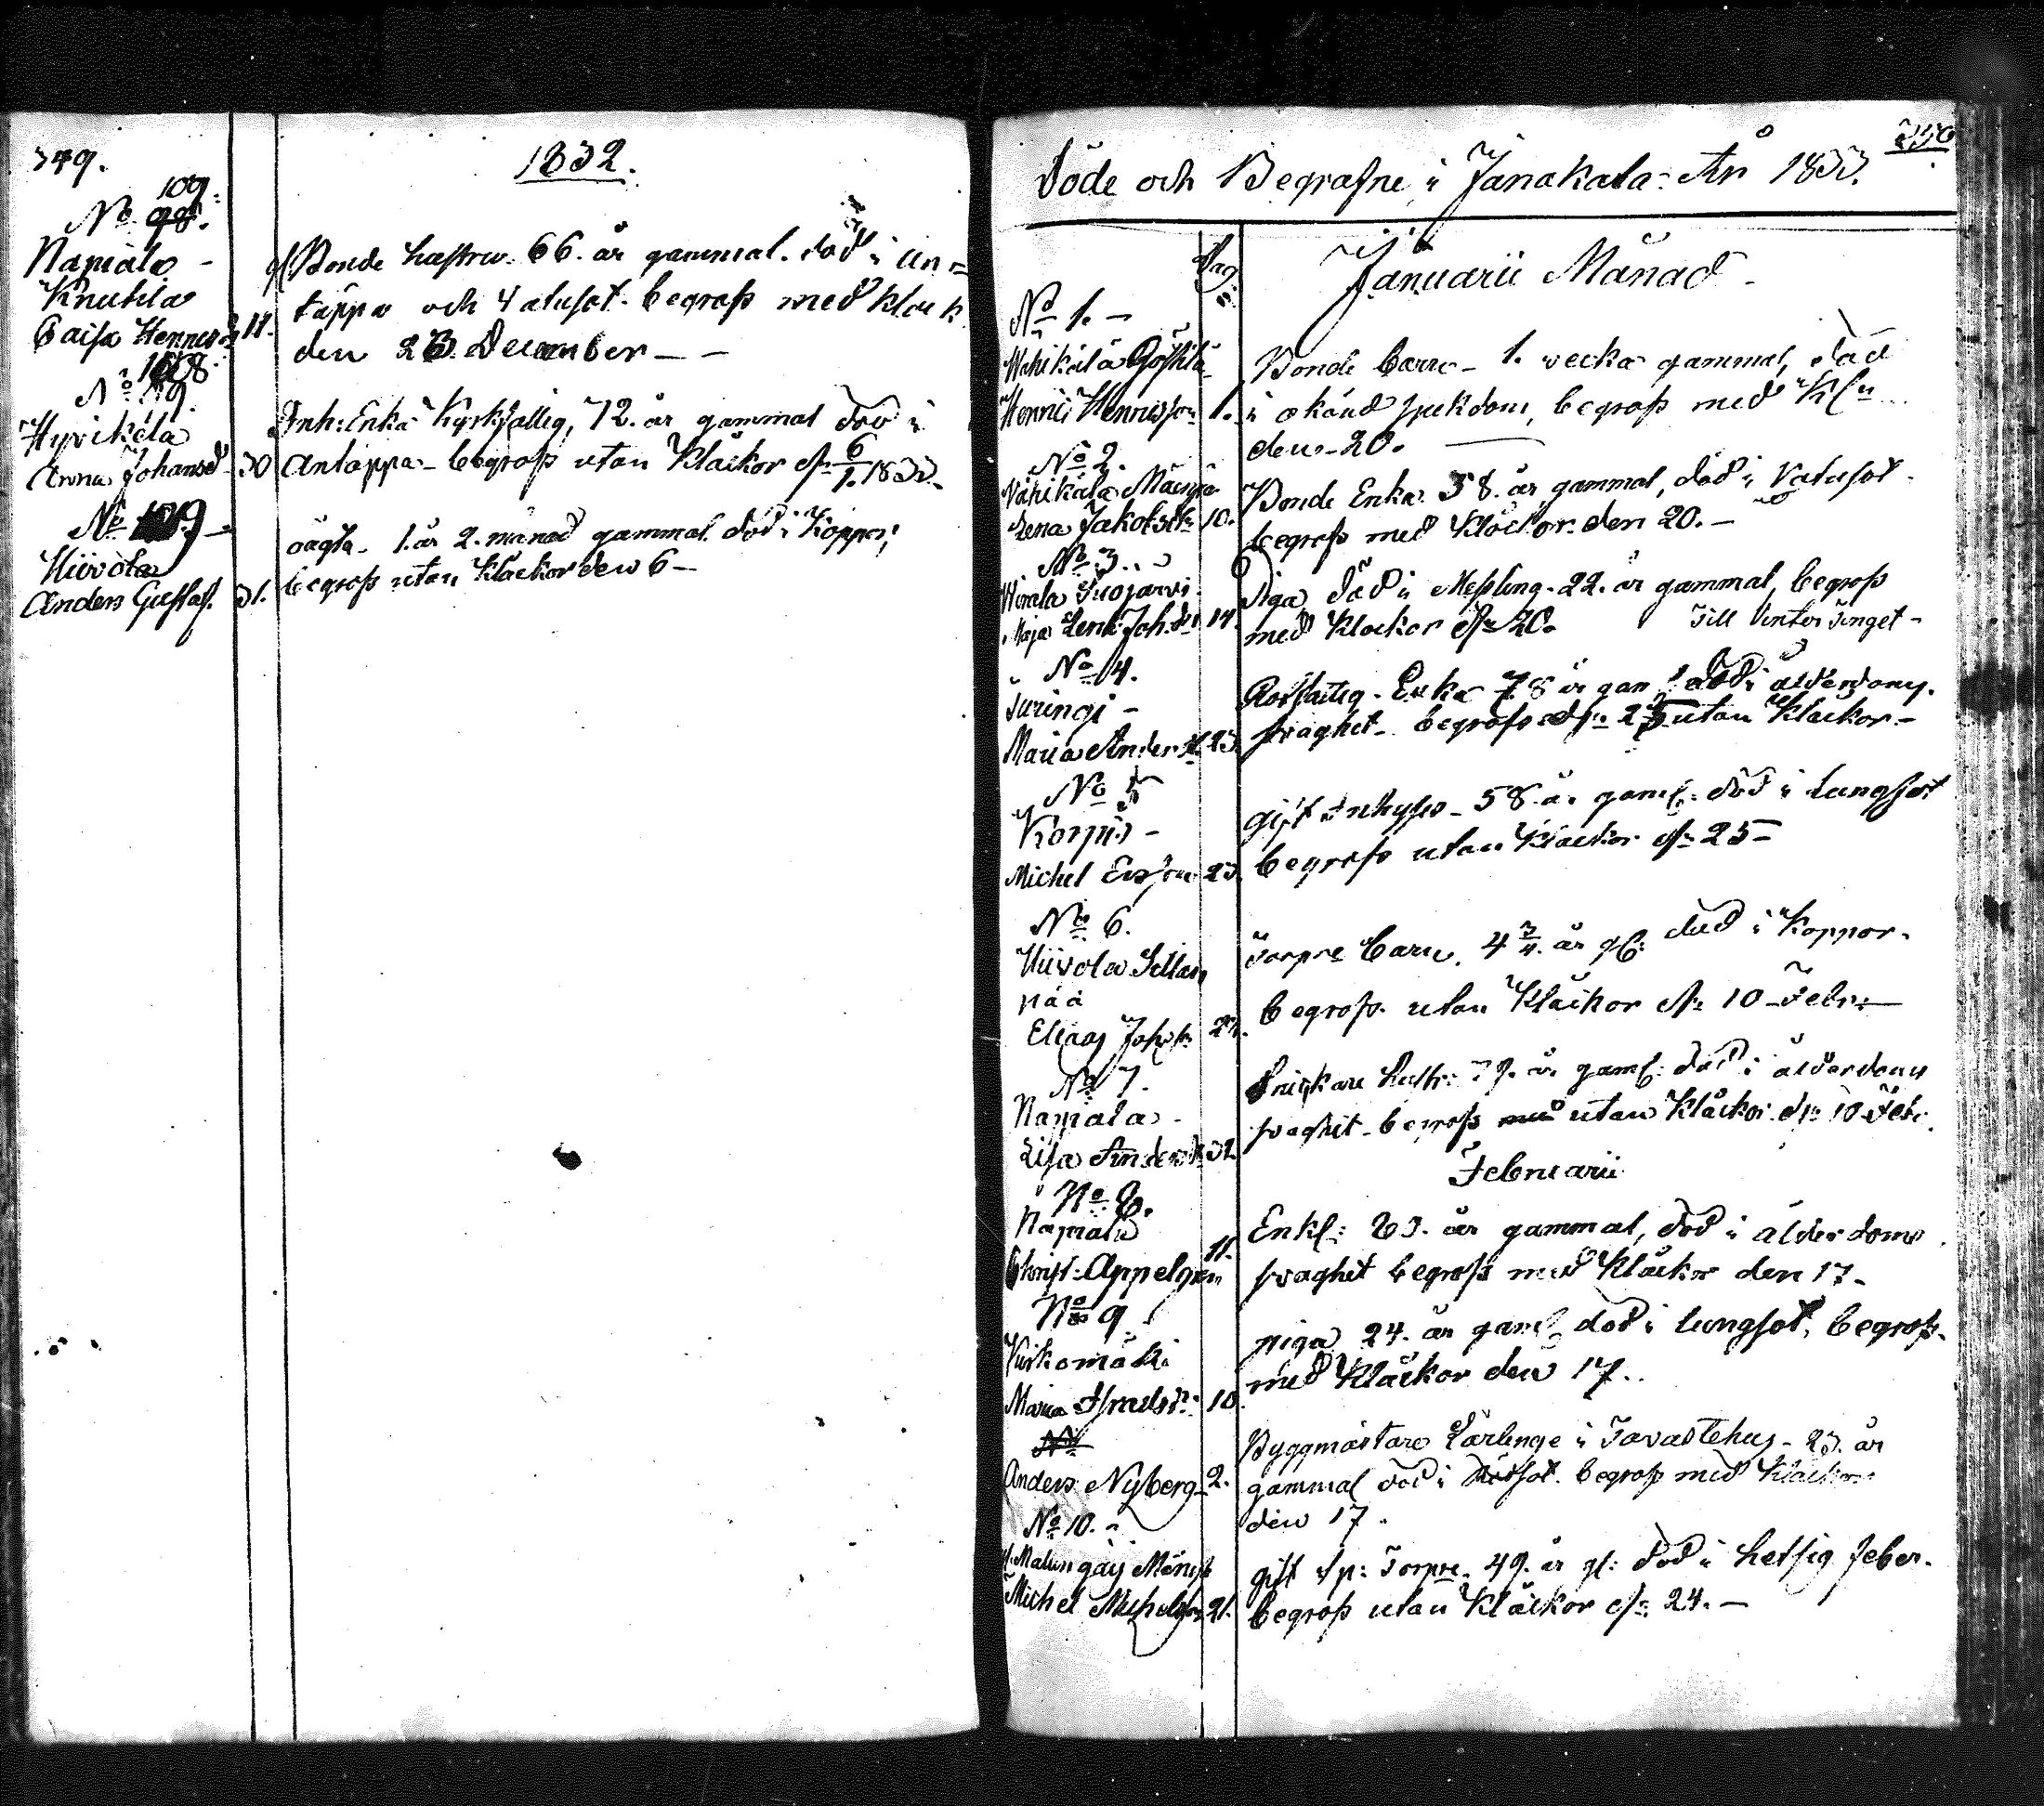 349.
1832.
109.
No 98.
Napiala -
Knutila
Caisa Hennesd 11.
Bonde hustru 66. år gammal. död i an=
täppa och Vatusot. begrofs med Klock
den 23 December - -
108.
No
Hyvikälä
Anna Johansd 30
Inh: Enka Kyrkfattig, 72. år gammal död i
Antäppa - begrofs utan Klåckor d. 6/1. 1833.
No 109 -
Hiivola
Anders Gustaf. 31.
oägta - 1. år 2. månad gammal död i Koppor,
begrofs utan Klåckor den 6 -
Döde och Begrafne i Janakala År 1833.
350
Dag
Januarii Månad -
No 1. -
Henric Henricsson 1.
Bonde barn - 1. vecka gammal, död
i okänd sjukdom, begrofs med Kl
den 20.
No 2.
Lena Jakobsd 10.
Bonde Enka 58. år gammal, död i Vatusot
begrofs med Klockor den 20. -
No 3.
Maja Lena Joh.d 14.
Piga död i Messling - 22. år gammal, begrofs
med Klockor d. 20. Till Vinter Tinget -
No 4.
Turingi -
Maria Andersd 23.
Enka 78 år gam död i ålderdoms
svaghet - begrofs d. 25 utan Klockor -
No 5
Korpis -
Michel Ersson 23.
gift Inhyses - 58. år gaml: död i lungsot
begrofs utan Klackor d. 25 -
No 6.
Hiivola Sillan
pää
Elias
Torpare barn. 4 3/4. år gl: död i Koppor.
begrofs. utan Klåckor d. 10 Febr:
No 7.
Napiala -
Lisa Andersd
Snickare hustr: 79. år gaml: död i ålderdoms
svaghet - begrofs med utan Klåckor d. 10 Febr.
Februarii
No 8.
Napiala
Christ: Appelgren 11.
Enkl: 83. år gammal, död i ålderdoms
svaghet begrofs med Klåckor den 17 -
No 9
Virkamäki
Maria Israelsd: 10.
piga 24. år gaml död i lungsot, begrofs
med Klåckor den 17..
No
Anders Nyberg - 2.
Byggmästare Lärlinge i Tavastehus - 23. år
gammal död i begrofs med Klåckor
den 17.
No 10. -
Michel Michelsson 21.
gift Torpare 49. år gl: död i hetsig feber.
begrofs utan Klåckor d. 24. -